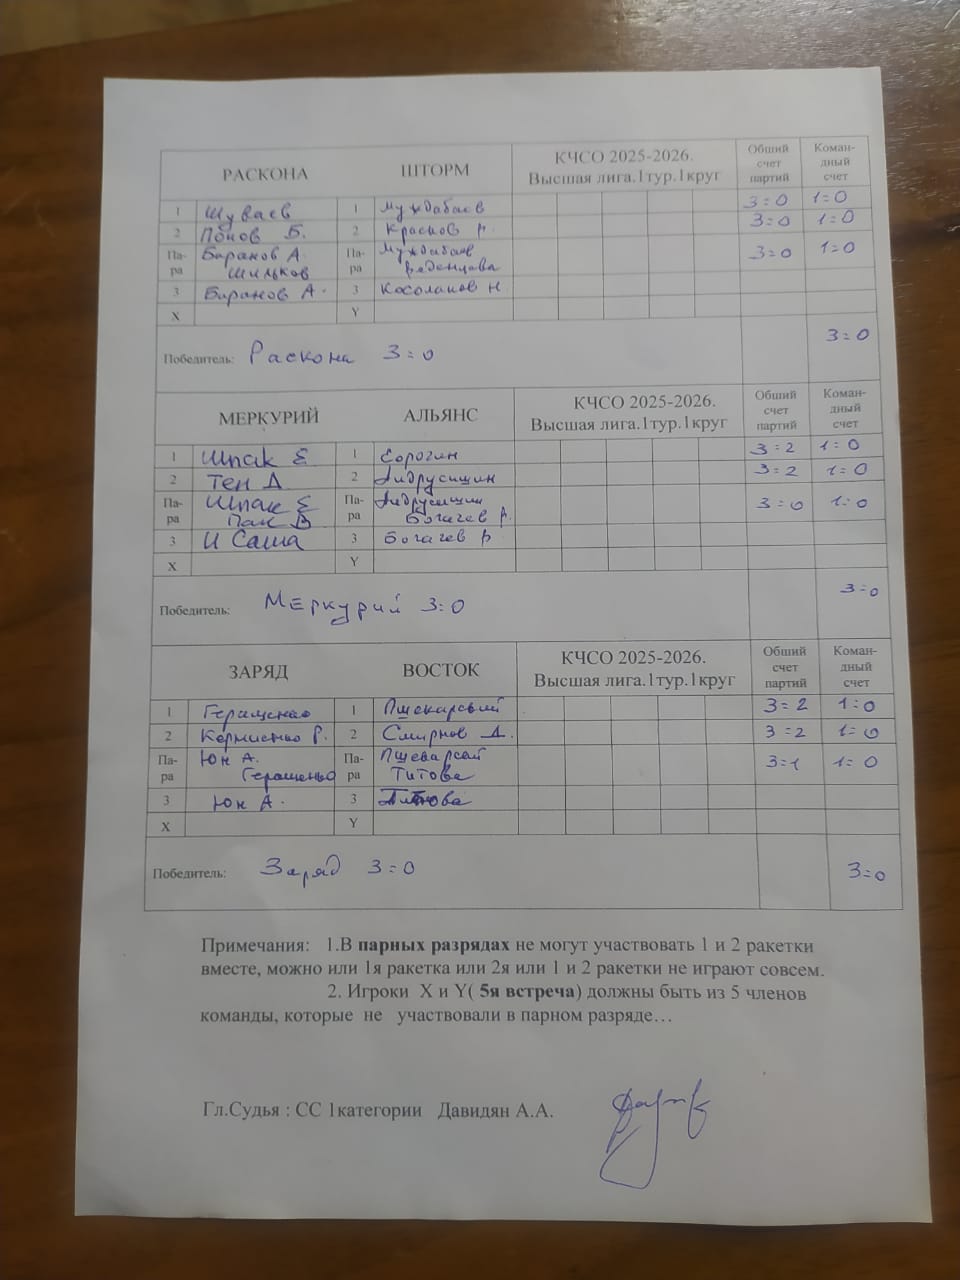 РАСКОНА ШТОРМ КЧСО 2025-2026. Высшая лига.1тур.1круг Общий счет партий Коман-дный счет
1 Шуваев 1 Муждабаев 3=0 1=0
2 Попов Б. 2 Краснов 3=0 1=0
Па-ра Баранов А. Па-ра Муждабаев 3=0 1=0
Шильков Веденцова
3 Баранов А. 3 Косолапов Н
X Y
Победитель: Раскона 3=0 3=0
МЕРКУРИЙ АЛЬЯНС КЧСО 2025-2026. Высшая лига.1тур.1круг Общий счет партий Коман-дный счет
1 Шпак Е 1 Сорогин 3=2 1=0
2 Тен Д 2 Андрусишин 3=2 1=0
Па-ра Шпак Е Па-ра Андрусишин 3=0 1=0
Пак В Богачев Р.
3 И Саша 3 Богачев Р
X Y
Победитель: Меркурий 3:0 3=0
ЗАРЯД ВОСТОК КЧСО 2025-2026. Высшая лига.1тур.1круг Общий счет партий Коман-дный счет
1 Геращенко 1 3=2 1=0
2 Р. 2 Смирнов Д. 3=2 1=0
Па-ра Юн А. Па-ра 3=1 1=0
Геращенко Титова
3 Юн А. 3
X Y
Победитель: Заряд 3=0 3=0
Примечания: 1.В парных разрядах не могут участвовать 1 и 2 ракетки
вместе, можно или 1я ракетка или 2я или 1 и 2 ракетки не играют совсем.
2. Игроки X и Y( 5я встреча) должны быть из 5 членов
команды, которые не участвовали в парном разряде…
Гл.Судья : СС 1категории Давидян А.А.